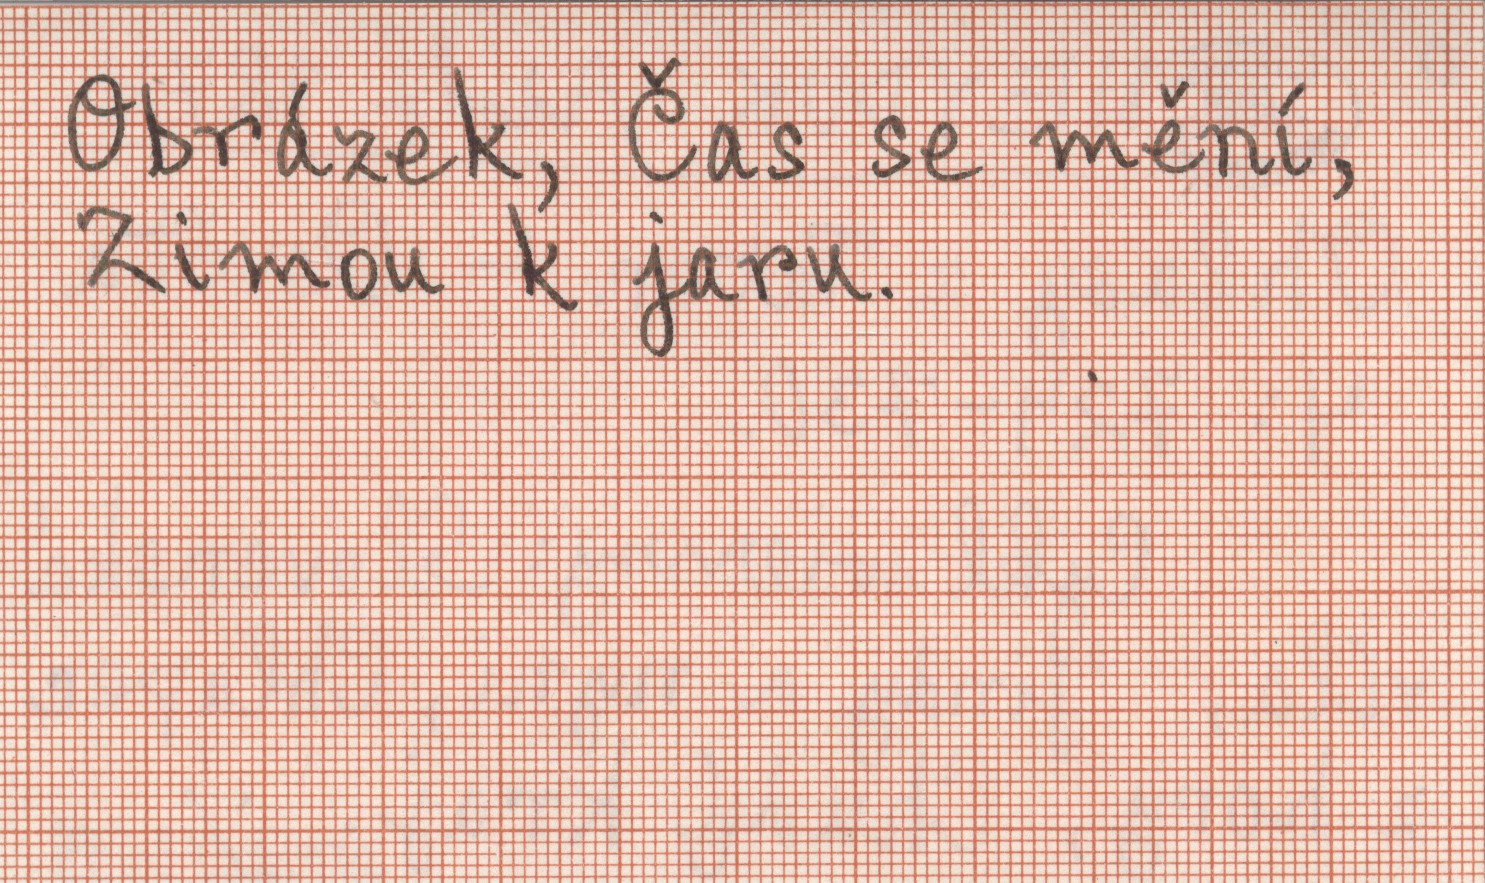 Obrázek, Čas se mění,
Zimou k jaru.